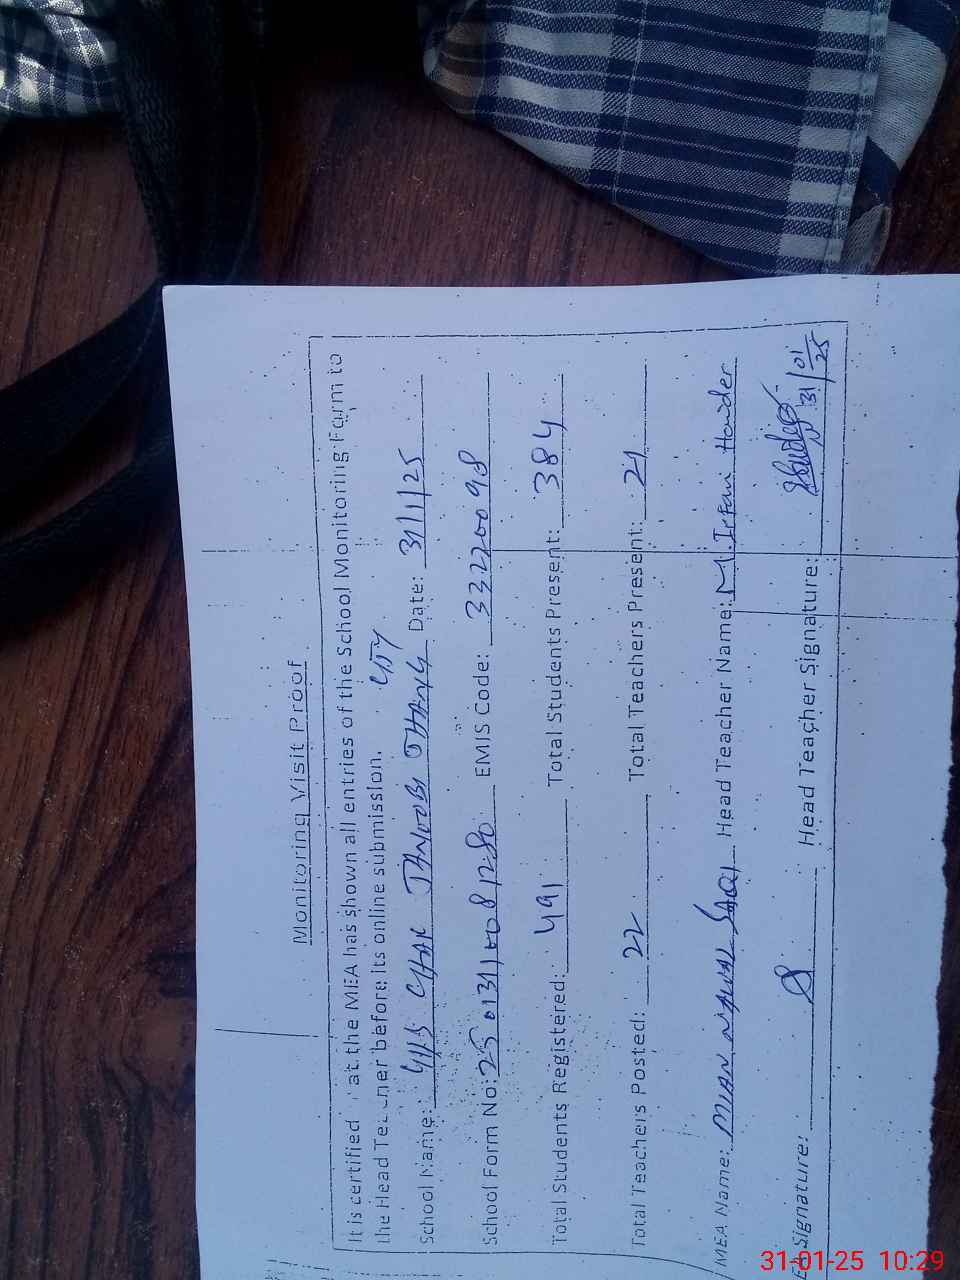 Monitoring Visit Proof
It is certified at the MEA has shown all entries of the School Monitoring Form to
the Head Teacher before its online submission.
School Name: GHS CHAK JANOOBI JHANG CITY Date: 31/1/25
School Form No: EMIS Code: 33220098
Total Students Registered: 491 Total Students Present: 384
Total Teachers Posted: 22 Total Teachers Present: 21
MEA Name: MIAN NAWAL SAQI Head Teacher Name: M. Irfan Haider
Signature: Head Teacher Signature: 31/01/25
31-01-25 10:29